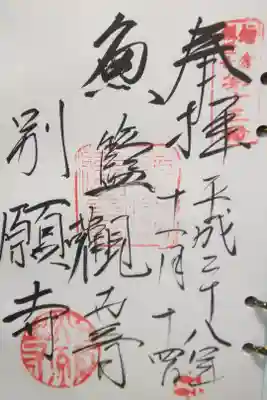 奉拝
平成二十八年
十一月十四日
魚籃観世音
別願寺